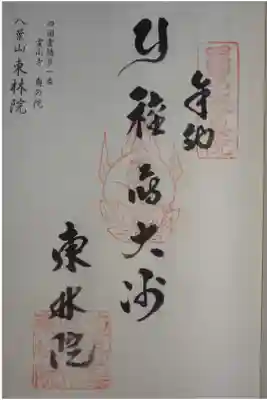 奉納
種蒔大師
東林院
四国霊場第一番
霊山寺 奥の院
八葉山 東林院